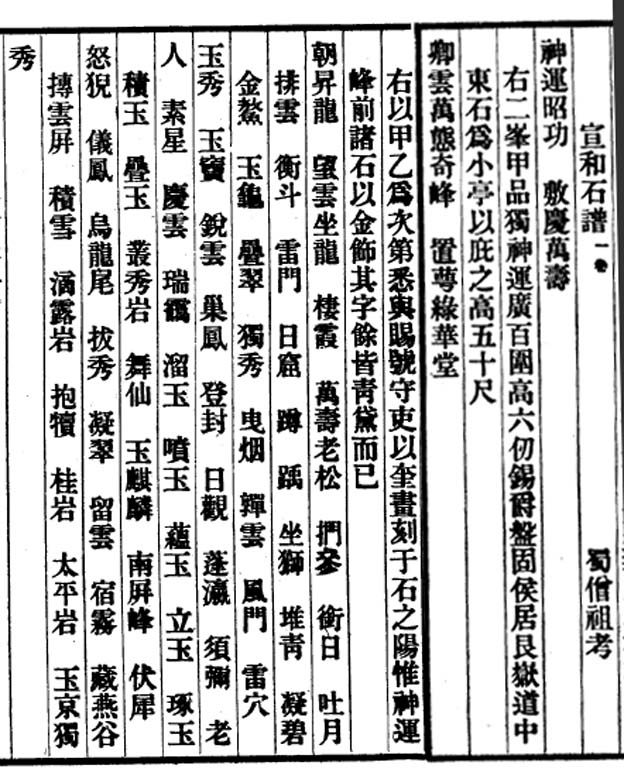 宣和石譜一卷
蜀僧祖考
神運昭功 敷慶萬壽
右二峯甲品獨神運廣百圍高六仞錫爵盤固侯居艮嶽道中
東石爲小亭以庇之高五十尺
卿雲萬態奇峰 置蕚綠華堂
右以甲乙爲次第悉與賜號守吏以奎畫刻于石之陽惟神運
峰前諸石以金飾其字餘皆靑黛而已
朝昇龍 望雲坐龍 棲霞 萬壽老松 捫參 銜日 吐月
排雲 衡斗 雷門 日窟 蹲踽 坐獅 堆靑 凝碧
金鰲 玉龜 疊翠 獨秀 曳烟 嚲雲 風門 雷穴
玉秀 玉竇 銳雲 巢鳳 登封 日觀 蓬瀛 須彌 老
人 素星 慶雲 瑞靄 溜玉 噴玉 蘊玉 立玉 琢玉
積玉 疊玉 叢秀岩 舞仙 玉麒麟 南屏峰 伏犀
怒猊 儀鳳 烏龍尾 拔秀 凝翠 留雲 宿霧 藏燕谷
摶雲屏 積雪 滴露岩 抱犢 桂岩 太平岩 玉京獨
秀